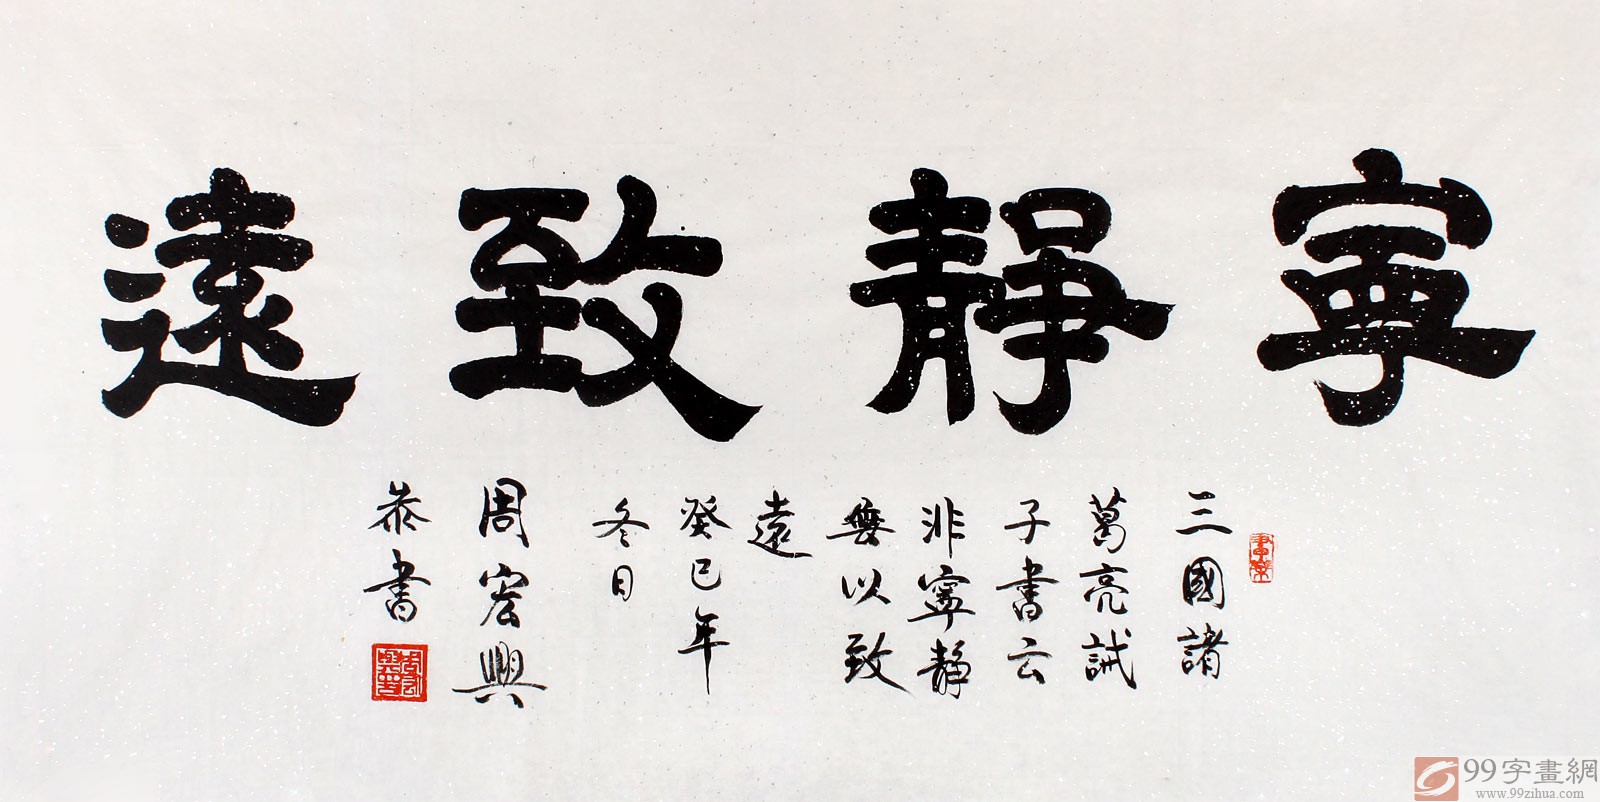 寧靜致遠
三國諸
葛亮誡
子書云
非寧靜
無以致
遠
癸巳年
冬日
周宏興
恭書
99字畫網
www.99zihua.com